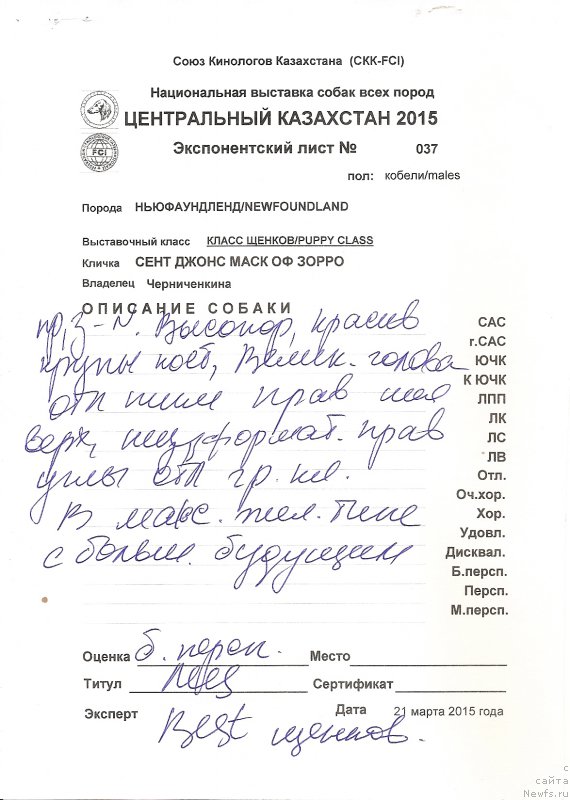 Союз Кинологов Казахстана (СКК-FCI)
Национальная выставка собак всех пород
ЦЕНТРАЛЬНЫЙ КАЗАХСТАН 2015
FCI
Экспонентский лист № 037
пол: кобели/males
Порода НЬЮФАУНДЛЕНД/NEWFOUNDLAND
Выставочный класс КЛАСС ЩЕНКОВ/PUPPY CLASS
Кличка СЕНТ ДЖОНС МАСК ОФ ЗОРРО
Владелец Черниченкина
ОПИСАНИЕ СОБАКИ
Высокопор, красив
крупн кост, Велик. голова
отл пигм прав шея
верх, формат. прав
углы отл гр. кл.
В макс. жел. типе
с больш. будущим
САС
г.САС
ЮЧК
К ЮЧК
ЛПП
ЛК
ЛС
ЛВ
Отл.
Оч.хор.
Хор.
Удовл.
Дисквал.
Б.персп.
Персп.
М.персп.
Оценка б. персп. Место
Титул Сертификат
Эксперт Дата 21 марта 2015 года
Best щенков.
с
сайта
Newfs.ru